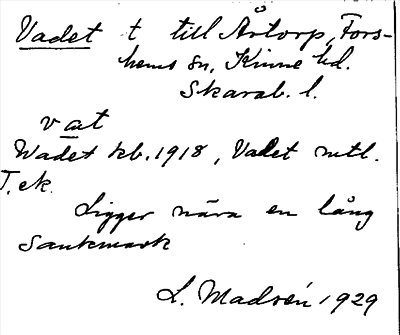 Vadet t till Årtorp, Fors-
hems sn, Kinne hd.
Skarab. l.
vat
Wadet kb. 1918, Vadet mtl.
T. ek.
Ligger nära en lång
sankmark
L. Madsén 1929